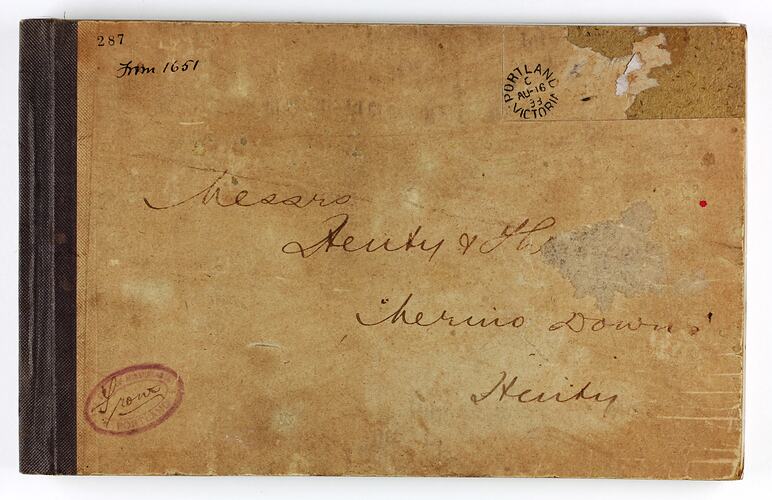 287
From 1651
PORTLAND
C
AU-16
33
VICTORIA
Messrs
Henty &
"Merino Downs"
Henty